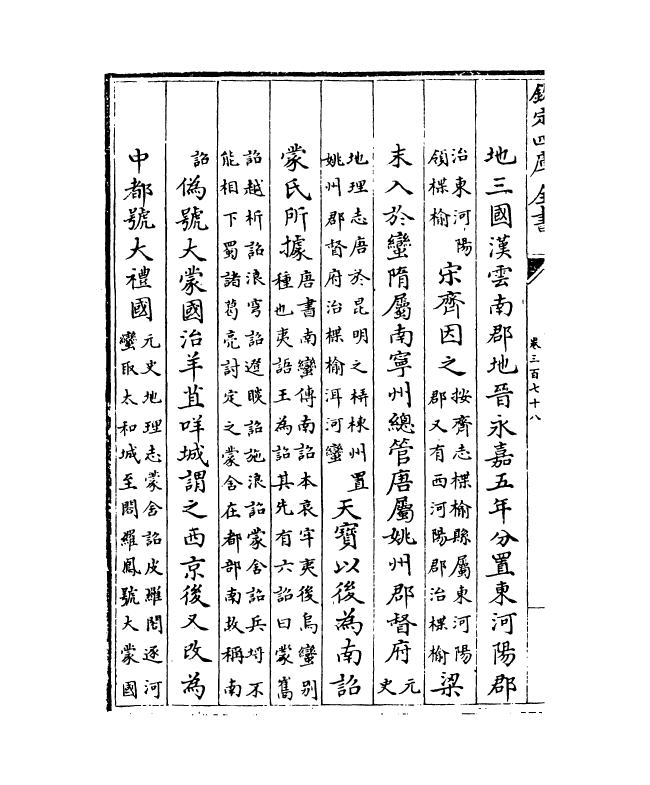 欽定四庫全書
卷三百七十八
地三國漢雲南郡地晉永嘉五年分置東河陽郡
治東河陽領楪榆宋齊因之按齊志楪榆縣屬東河陽郡又有西河陽郡治楪榆梁
末入於蠻隋屬南寧州總管唐屬姚州郡督府元史
地理志唐於昆明之梇棟州置姚州郡督府治楪榆洱河蠻天寶以後為南詔
蒙氏所據唐書南蠻傳南詔本哀牢夷後烏蠻别種也夷語王為詔其先有六詔曰蒙嶲
詔越析詔浪穹詔邆睒詔施浪詔蒙舍詔兵埒不能相下蜀諸葛亮討定之蒙舍在都部南故稱南
詔偽號大蒙國治羊苴咩城謂之西京後又改為
中都號大禮國元史地理志蒙舍詔皮羅閣逐河蠻取太和城至閣羅鳳號大蒙國